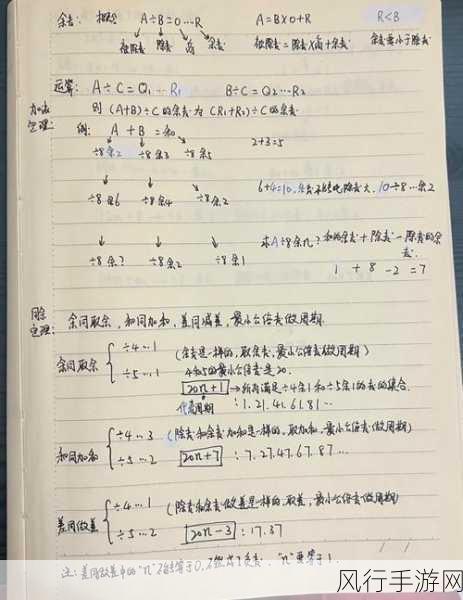 余数: 概念 A÷B=Q…R A=B×Q+R R<B
被除数 除数 商 余数 被除数=除数×商+余数 余数要小于除数
运算: A÷C=Q1…R1 B÷C=Q2…R2
加法定理: 则(A+B)÷C的余数为(R1+R2)÷C的余数
例: A + B = 和
÷8余2 ÷8余3 ÷8余5 2+3=5
÷8余6 ÷8余4 ÷8余2 6+4=10, 余数不能比除数大, 10÷8…余2
÷8余? ÷8余2 ÷8余1 求A÷8余几? 和的余数+除数-除数的余数
1 + 8 - 2 = 7
同余定理: 余同取余, 和同加和, 差同减差, 最小公倍数做周期.
余同取余 { ÷4…1 (余数是一样的, 取余数, 最小公倍数做周期)
4和5的最小公倍数是20.
÷5…1 20n+1 → 所有满足÷4余1和÷5余1的数的集合.
代表周期 : 1.21.41.61.81…
和同加和 { ÷4…3 (除数和余数加和是一样的, 取加和, 最小公倍数做周期)
÷5…2 20n+7 : 7.27.47.67.87…
差同做差 { ÷4…1 (除数和余数做差是一样的, 取差, 最小公倍数做周期)
÷5…2 20n-3 : 17.37
注: 差同做差中的"n"不能等于0, "n"要等于1
风行手游网